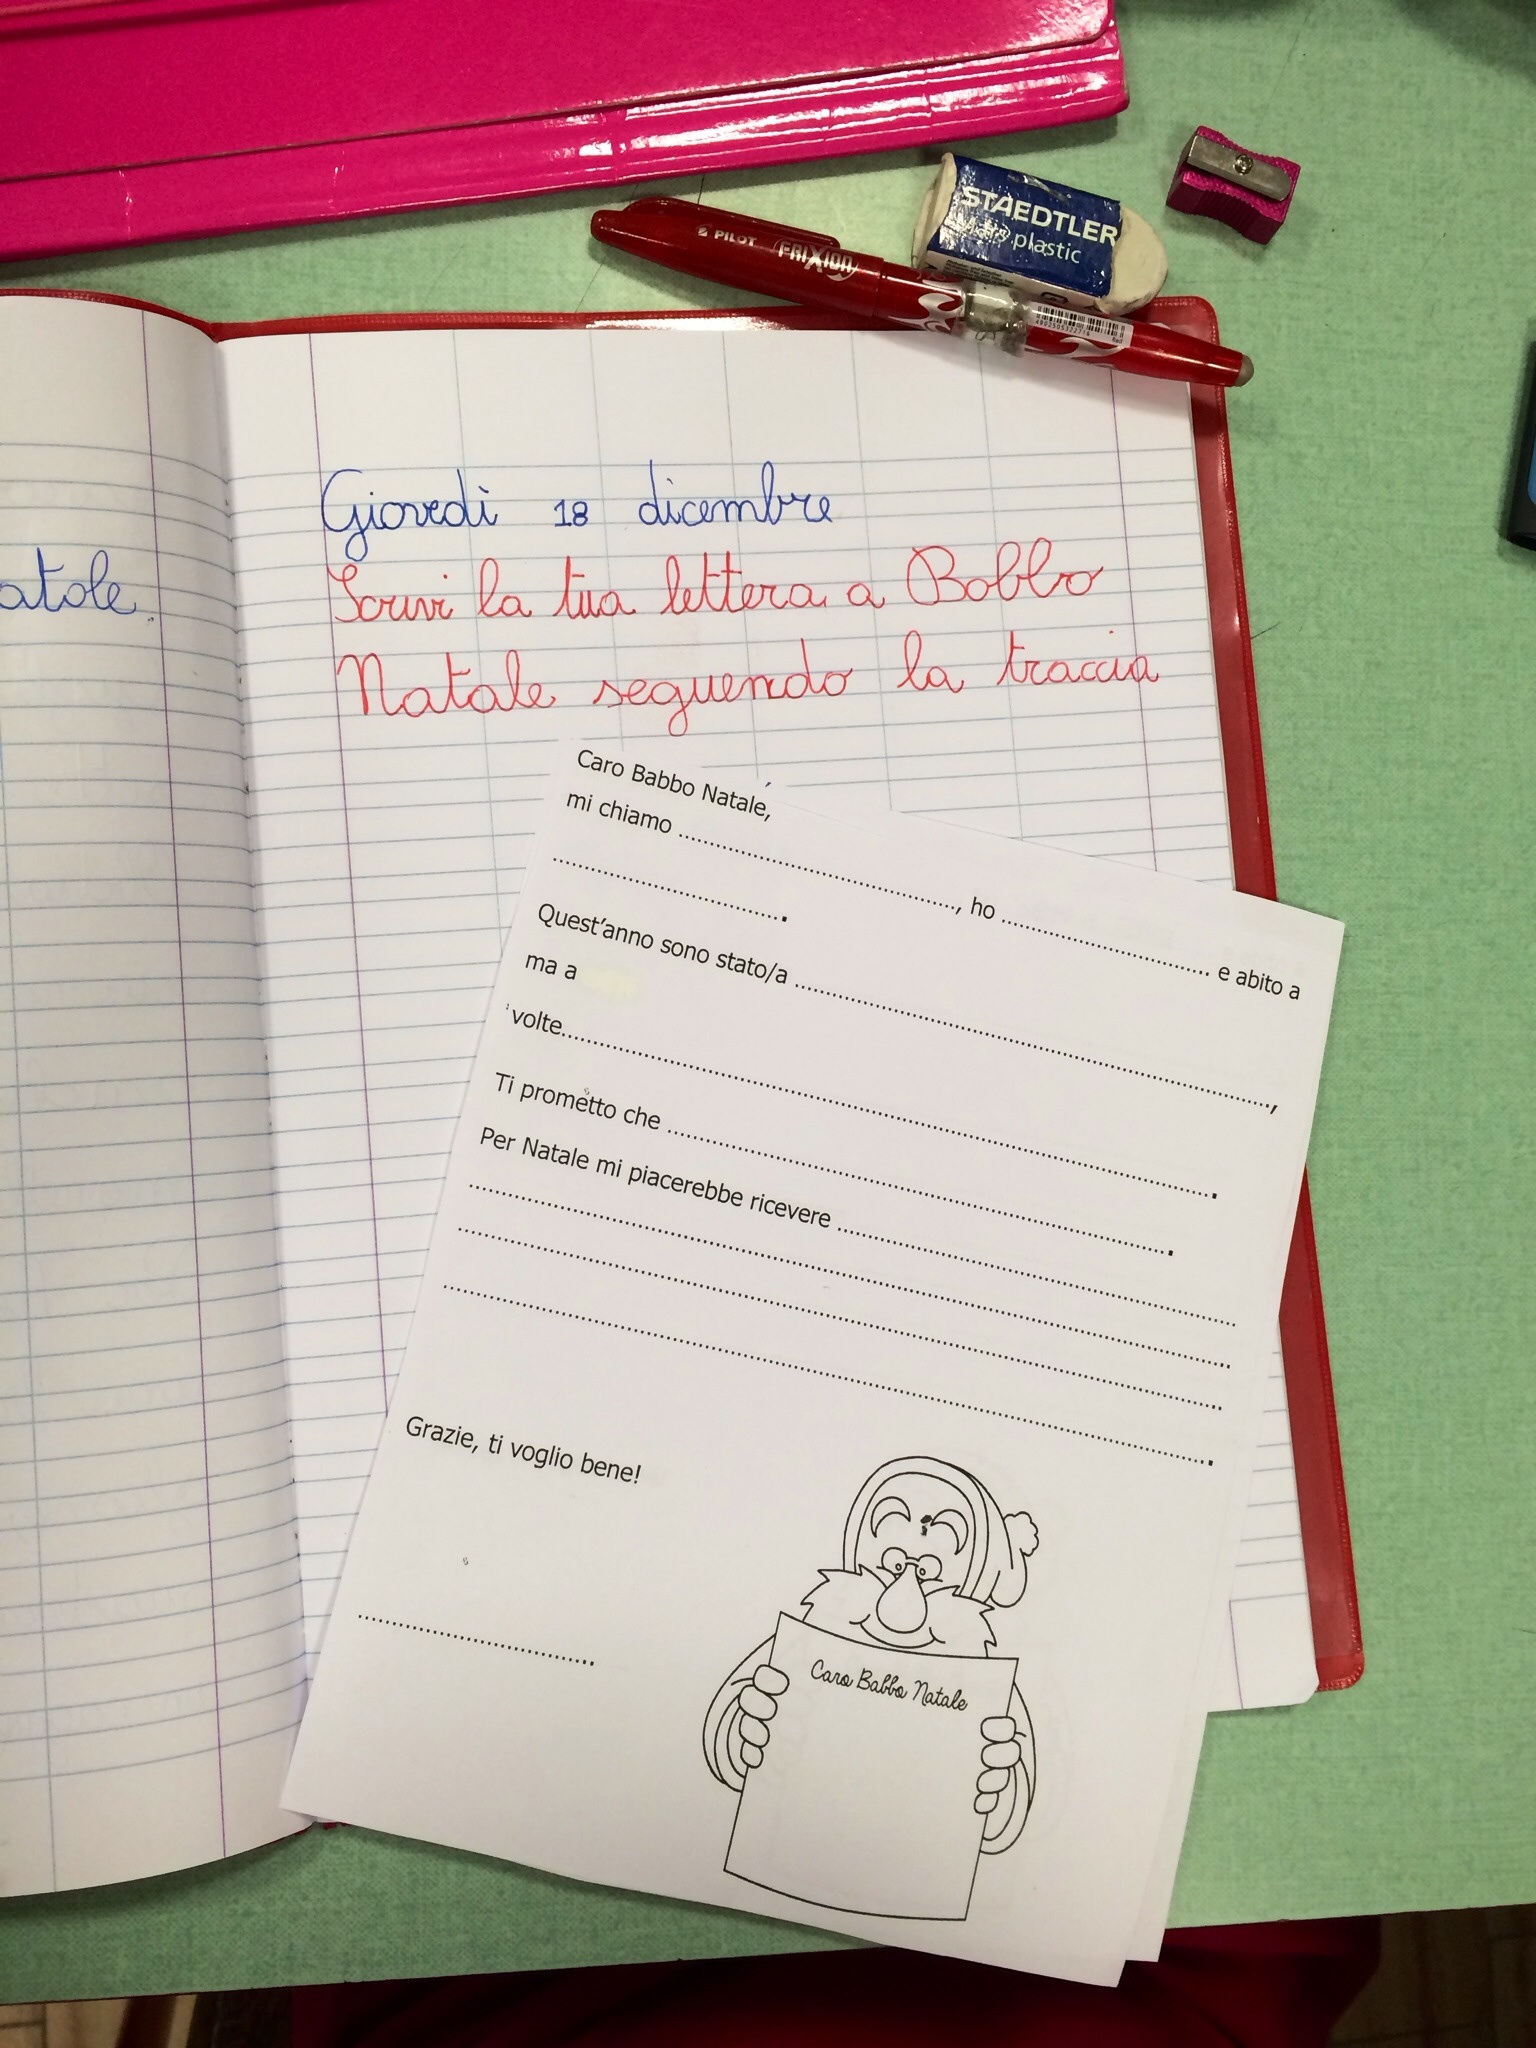 PILOT FRIXION
STAEDTLER
Mars plastic
atale.
Giovedì 18 dicembre
Scrivi la tua lettera a Babbo
Natale seguendo la traccia
Caro Babbo Natale,
mi chiamo .........................................., ho ................................ e abito a
...................................
Quest'anno sono stato/a .........................................................................,
ma a
volte....................................................................................................
Ti prometto che ..............................................................................
Per Natale mi piacerebbe ricevere ............................................................
....................................................................................................................
....................................................................................................................
....................................................................................................................
Grazie, ti voglio bene!
....................................
Caro Babbo Natale